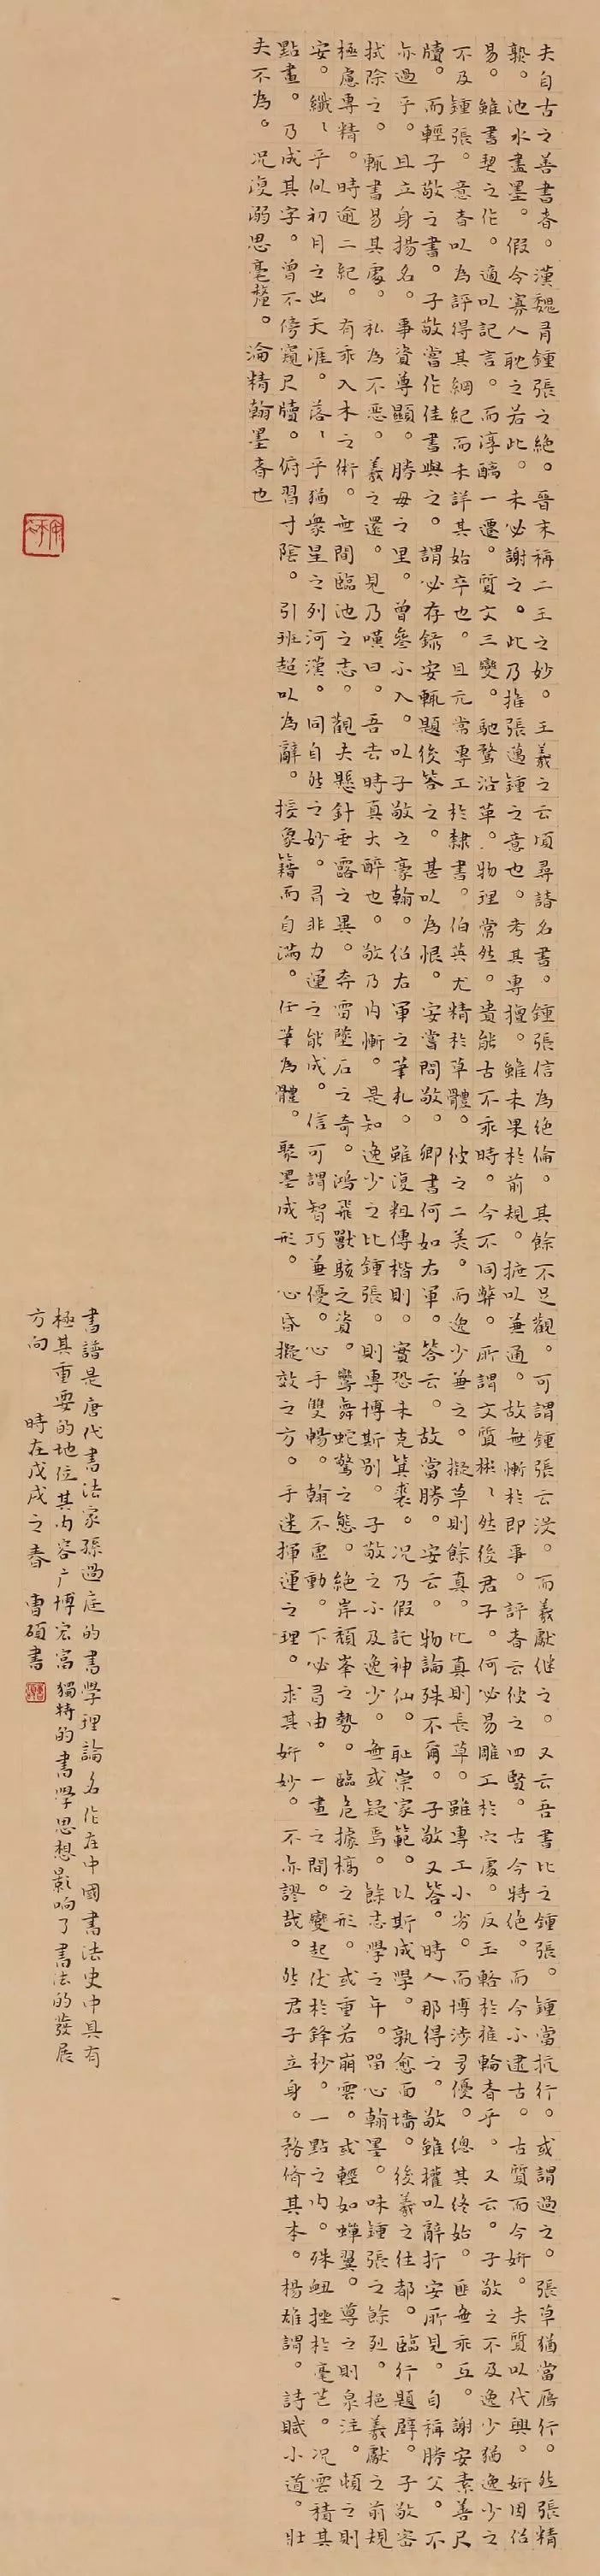 夫自古之善書者。漢魏有鍾張之絕。晉末稱二王之妙。王羲之云頃尋諸名書。鍾張信為絕倫。其餘不足觀。可謂鍾張云沒。而羲獻繼之。又云吾書比之鍾張。鍾當抗行。或謂過之。張草猶當雁行。然張精
熟。池水盡墨。假令寡人耽之若此。未必謝之。此乃推張邁鍾之意也。考其專擅。雖未果於前規。摭以兼通。故無慚於即事。評者云彼之四賢。古今特絕。而今不逮古。古質而今妍。夫質以代興。妍因俗
易。雖書契之作。適以記言。而淳醨一遷。質文三變。馳騖沿革。物理常然。貴能古不乖時。今不同弊。所謂文質彬〻然後君子。何必易雕工於穴處。反玉輅於椎輪者乎。又云。子敬之不及逸少猶逸少之
不及鍾張。意者以為評得其綱紀而未詳其始卒也。且元常專工於隸書。伯英尤精於草體。彼之二美。而逸少兼之。擬草則餘真。比真則長草。雖專工小劣。而博涉多優。總其終始。匪無乖互。謝安素善尺
牘。而輕子敬之書。子敬嘗作佳書與之。謂必存錄安輒題後答之。甚以為恨。安嘗問敬。卿書何如右軍。答云。故當勝。安云。物論殊不爾。子敬又答。時人那得之。敬雖權以辭折安所見。自稱勝父。不
亦過乎。且立身揚名。事資尊顯。勝母之里。曾參不入。以子敬之豪翰。紹右軍之筆札。雖復粗傳楷則。實恐未克箕裘。況乃假託神仙。恥崇家範。以斯成學。孰愈面墻。後羲之往都。臨行題壁。子敬密
拭除之。輒書易其處。私為不惡。羲之還。見乃嘆曰。吾去時真大醉也。敬乃內慚。是知逸少之比鍾張。則專博斯別。子敬之不及逸少。無或疑焉。餘志學之年。留心翰墨。味鍾張之餘烈。挹羲獻之前規
極慮專精。時逾二紀。有乖入木之術。無間臨池之志。觀夫懸針垂露之異。奔雷墜石之奇。鴻飛獸駭之資。鸞舞蛇驚之態。絕岸頹峯之勢。臨危據槁之形。或重若崩雲。或輕如蟬翼。導之則泉注。頓之則
安。纖〻乎似初月之出天涯。落〻乎猶衆星之列河漢。同自然之妙。有非力運之能成。信可謂智巧兼優。心手雙暢。翰不虛動。下必有由。一畫之間。變起伏於鋒杪。一點之內。殊衄挫於毫芒。況雲積其
點畫。乃成其字。曾不傍窺尺牘。俯習寸陰。引班超以為辭。援象籍而自滿。任筆為體。聚墨成形。心昏擬效之方。手迷揮運之理。求其妍妙。不亦謬哉。然君子立身。務脩其本。楊雄謂。詩賦小道。壯
夫不為。況復溺思毫釐。淪精翰墨者也
書譜是唐代書法家孫過庭的書學理論名作在中國書法史中具有
極其重要的地位其內容广博宏富獨特的書學思想影响了書法的發展
方向 時在戊戌之春 曹碩書